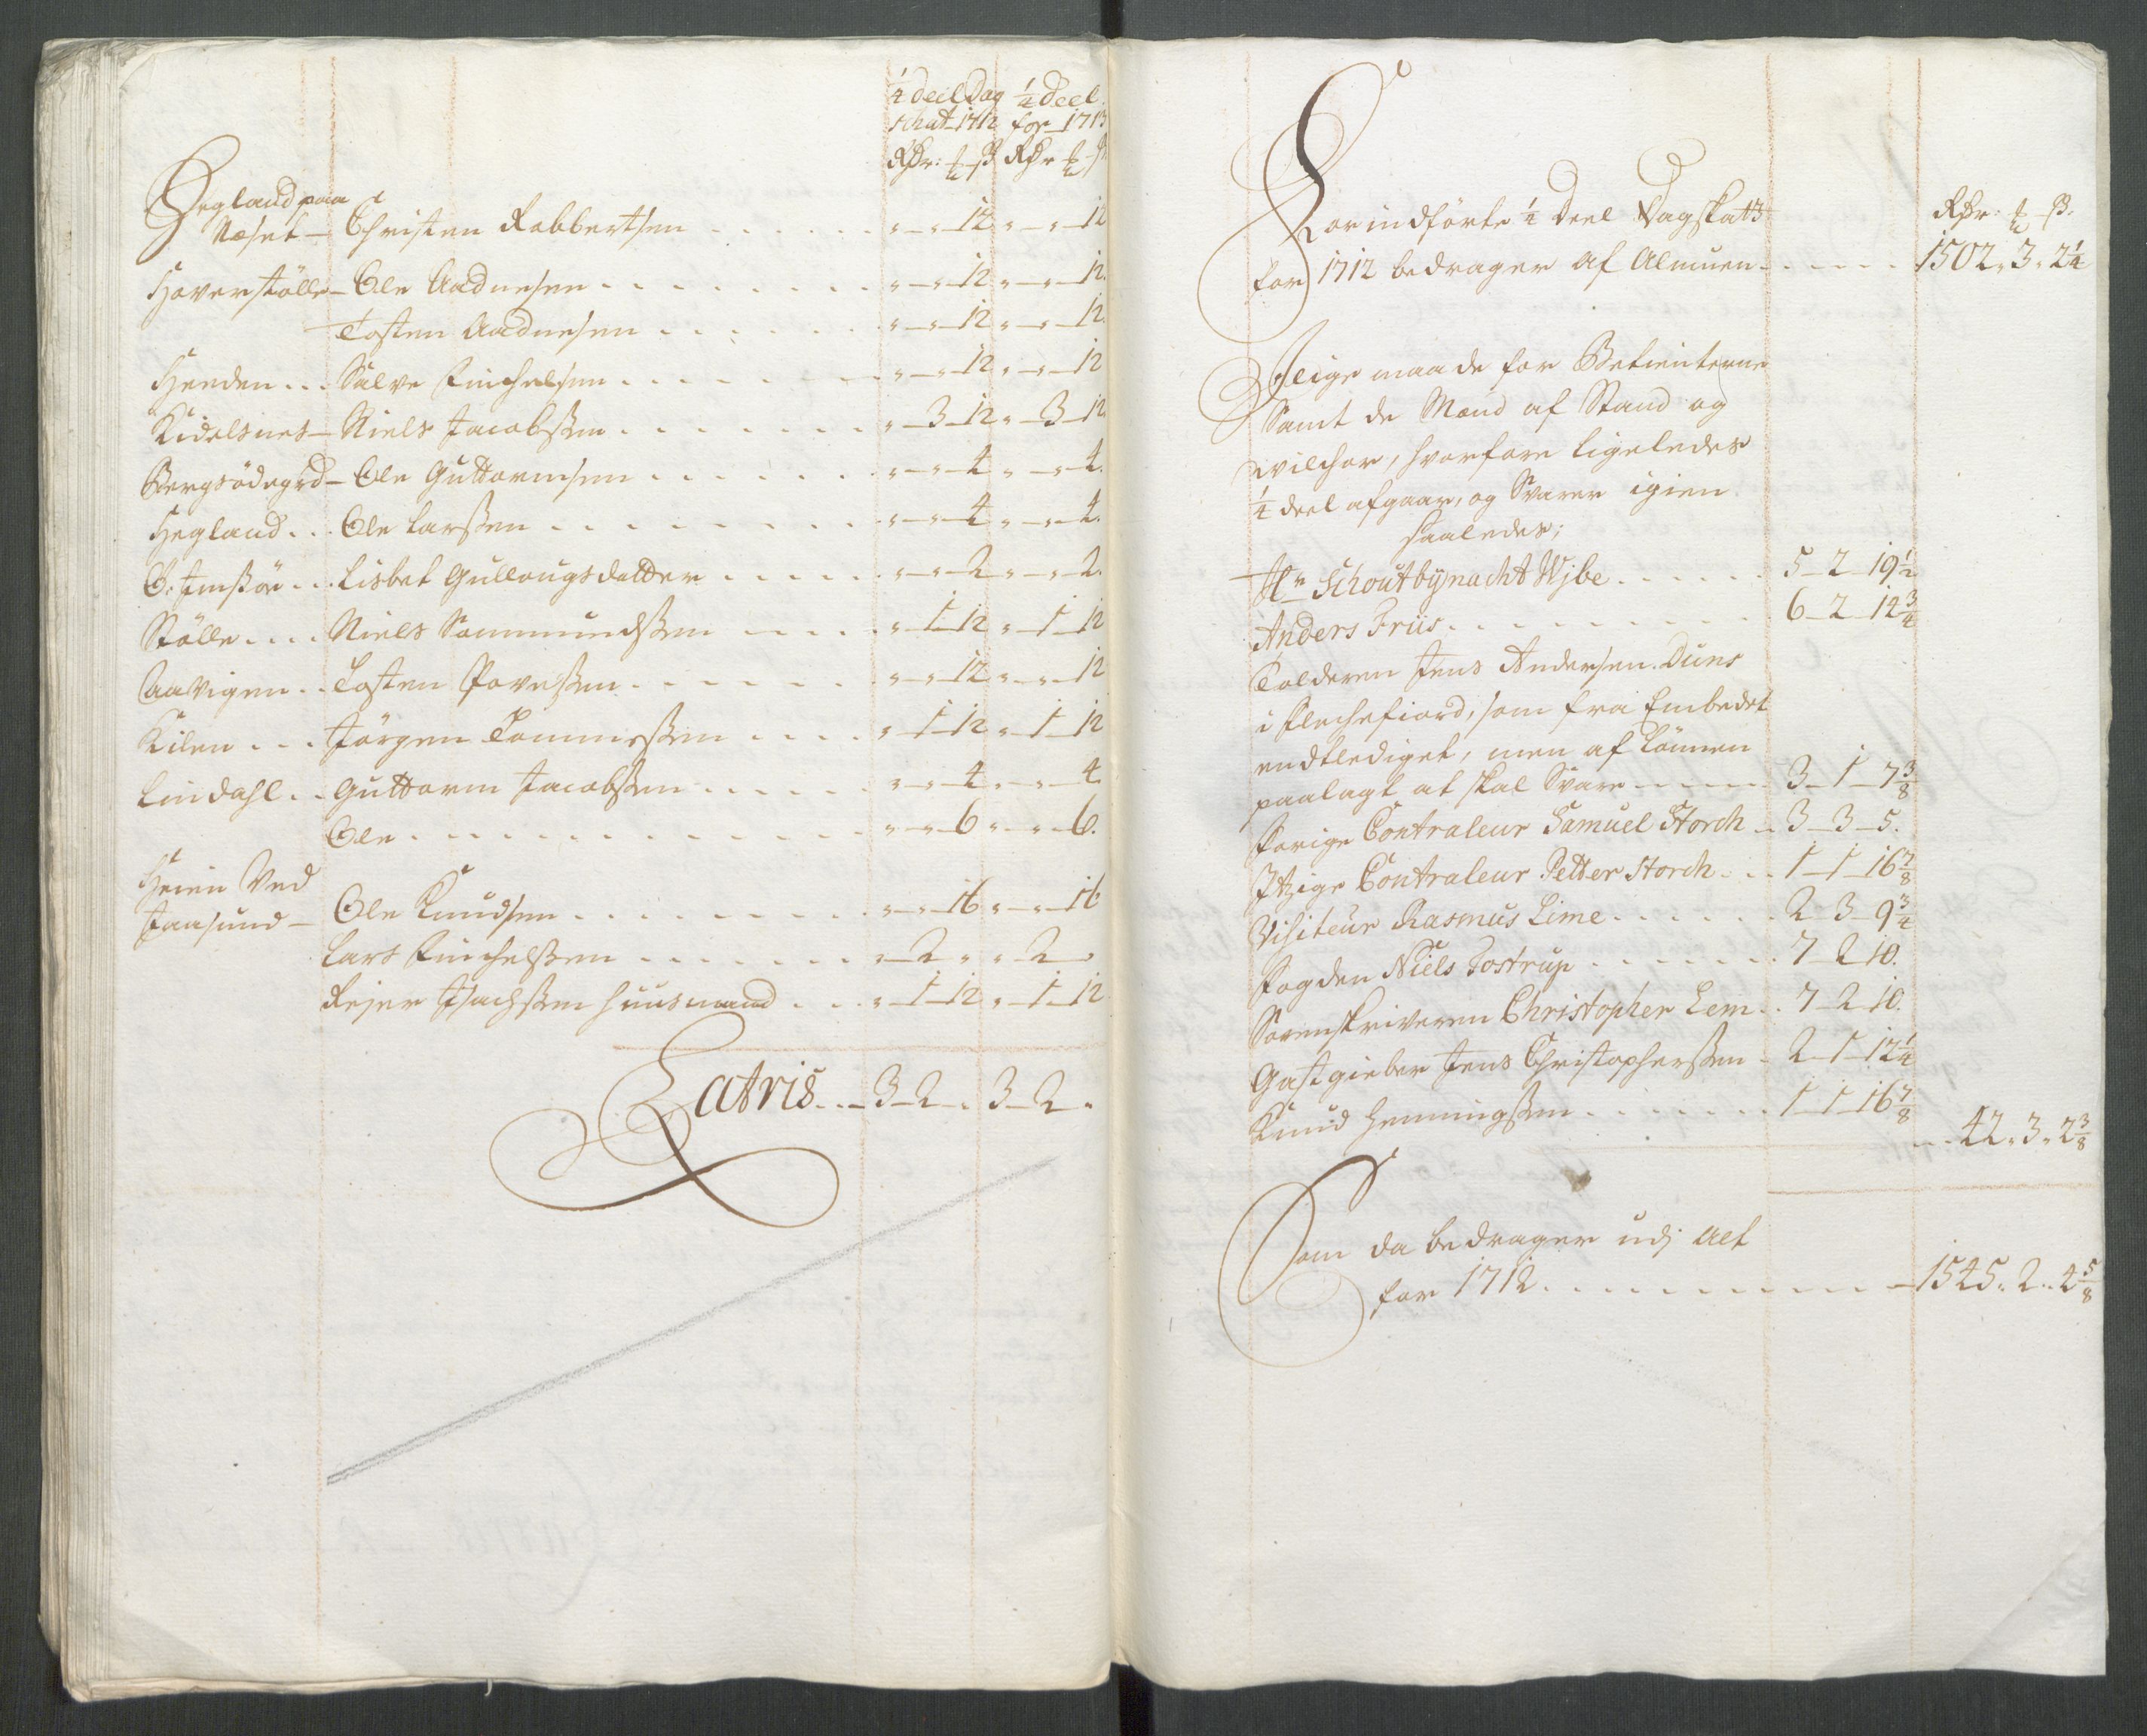 1/4 deel Dag 1/4 deel
schat 1712 for 1713
Rdr: ß Rdr ß
Hegland paa
Næset – Christen Robbertsen . . . . . . „ – „ – 12 „ – „ – 12
Haverstølle – Ole Aadnesen . . . . . . „ – „ – 12 „ – „ – 12.
Tosten Aadnesen . . . . . . „ – „ – 12 „ – „ – 12.
Heeden . . . Salve Enchelsen . . . . . . „ – „ – 12 „ – „ – 12
Kidelsnes – Niels Jacobsen . . . . . . „ – 3 – 12 „ – 3 – 12
Bergsødegrd – Ole Guttormsen . . . . . . „ – „ – 4 „ – „ – 4.
Hegland . . . Ole Larsen . . . . . . „ – „ – 4 „ – „ – 4.
Lisbet Gullougsdatter . . . . . „ – „ – 2 „ – „ – 2.
Stølle . . . . Niels Sammundsen . . . . „ – 1 – 12 „ – 1 – 12
Aavigen . . Tosten Povelsen . . . . . . „ – „ – 12 „ – „ – 12
Kilen . . . Jørgen Tommesen . . . . „ – 1 – 12 „ – 1 – 12
Lindahl . . Guttorm Jacobsen . . . . . „ – „ – 4 „ – „ – 4
Ole . . . . . . . . . . . „ – „ – 6 „ – „ – 6.
Heien Ved
Jaasund – Ole Knudsen . . . . . . . „ – „ – 16 „ – „ – 16
Lars Enchelsen . . . . . . . „ – 2 „ „ – 2 „
Rejer Isachsen huusmand . . . „ – 1 – 12 „ – 1 – 12
Latris . . – 3 – 2 „ 3 – 2 „
Forindførte 1/4 Deel Dagskatt Rdr: ß.
for 1712 bedrager af Almuen . . . . . 1502 „ 3 „ 2 1/4
I lige maade for Betienterne
Samt de Mænd af Stand og
vilchor, hvorfore ligeledes
1/4 deel afgaar, og Svarer igien
saaledes;
Hr Schoutbynacht Wibe . . . . . . 5 – 2 – 19 1/2
Anders Friis . . . . . . . . . 6 – 2 – 14 3/4
Tolderen Jens Andersen Duns
i Flechefiord, som fra Embedet
endtlediget, men af Lønnen
paalagt at skal Svare . . . . . 3 – 1 – 7 3/8
Forige Contraleur Samuel Storch – 3 – 3 – 5.
Itzige Contraleur Petter Storch . . . 1 – 1 – 16 7/8
Visiteur Rasmus Lime . . . . . . 2 – 3 – 9 3/4
Fogden Niels Tostrup . . . . . . . 7 – 2 10.
Sorenskriveren Christopher Lem . . 7 – 2 – 10.
Gastgieber Jens Christophersen – 2 – 1 – 12 1/4
Knud Henningsen . . . . . . . 1 – 1 – 16 7/8
. . . 42 „ 3 „ 2 3/8
Som da bedrager udj Alt
for 1712 . . . . . . . . . . . – 1545 „ 2 „ 4 5/8